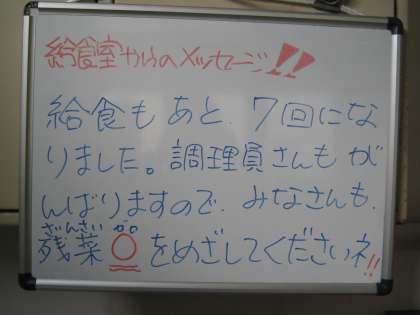 給食室からのメッセージ!!
給食もあと、7回にな
りました。調理員さんもが
んばりますので、みなさんも、
ざんさい
残菜〇をめざしてくださいネ!!